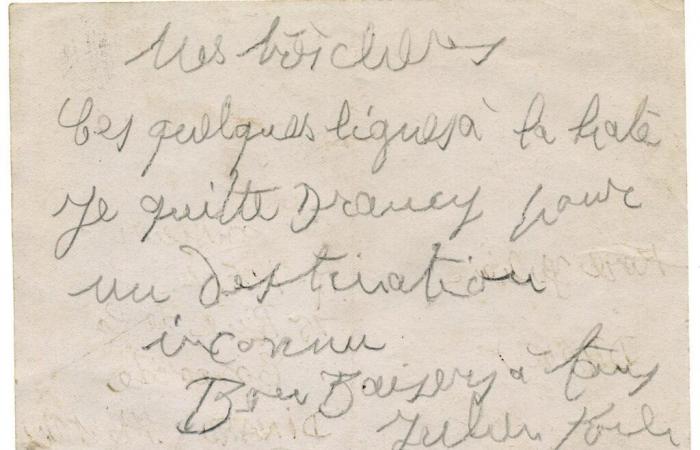 Mes très chères
Ces quelques lignes à la hate
Je quitte Drancy pour
un destination
inconnu
Bons Baisers à tous
Julien